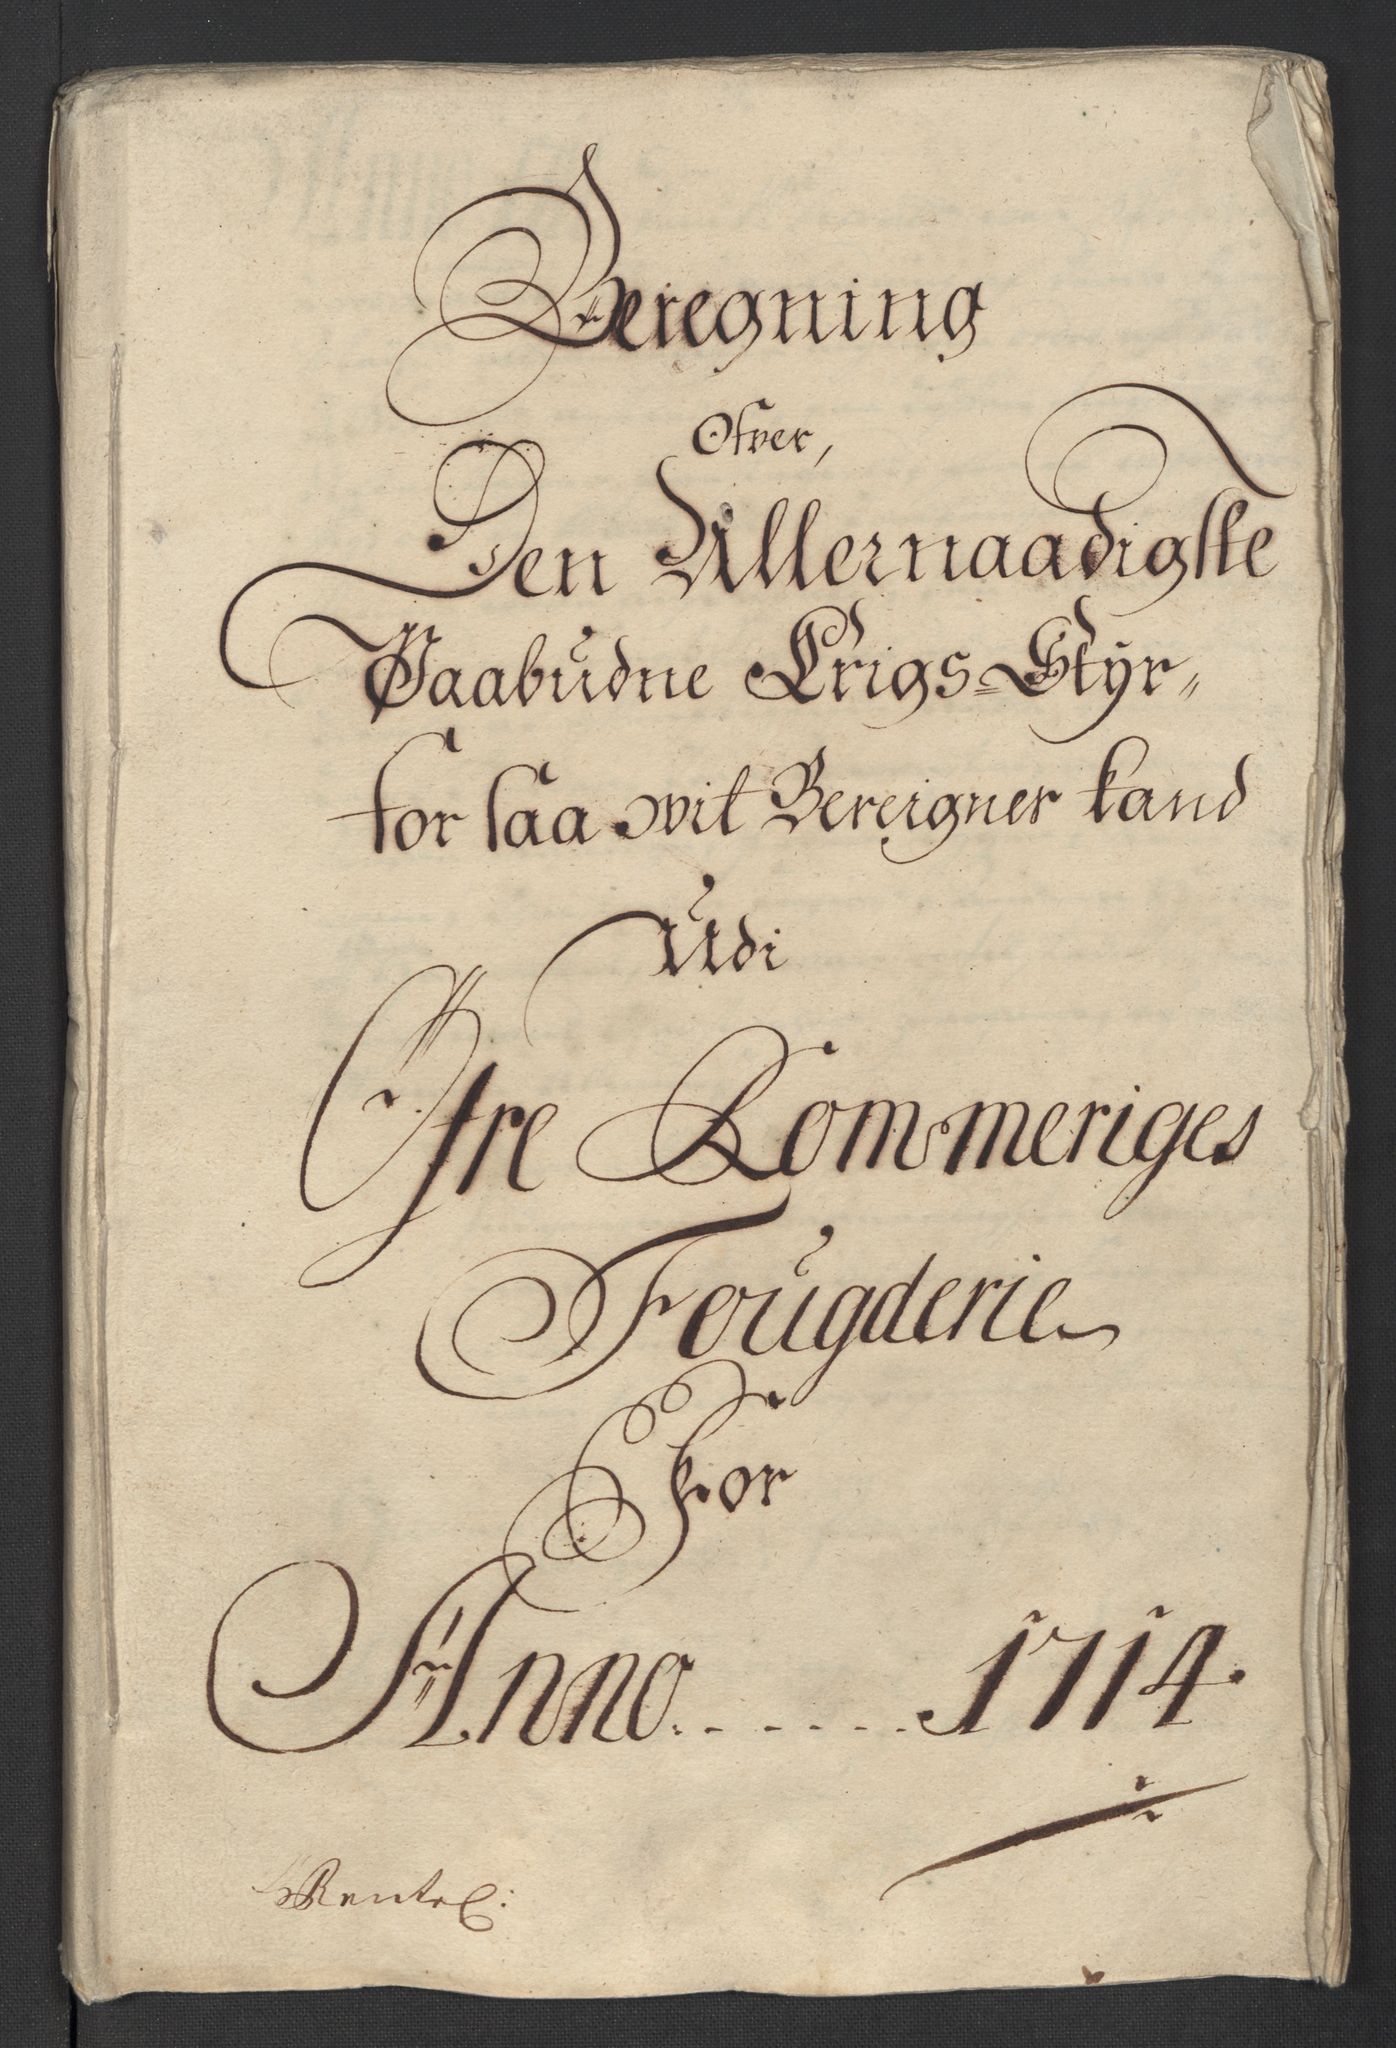 Beregning
Ofver,
Den Allernaadigste
Paabudne Crigs=Styr„
for saa vit Bereigner kand
Udi
Øfre Rommeriges
Fougderie
For
Anno....... 1714.